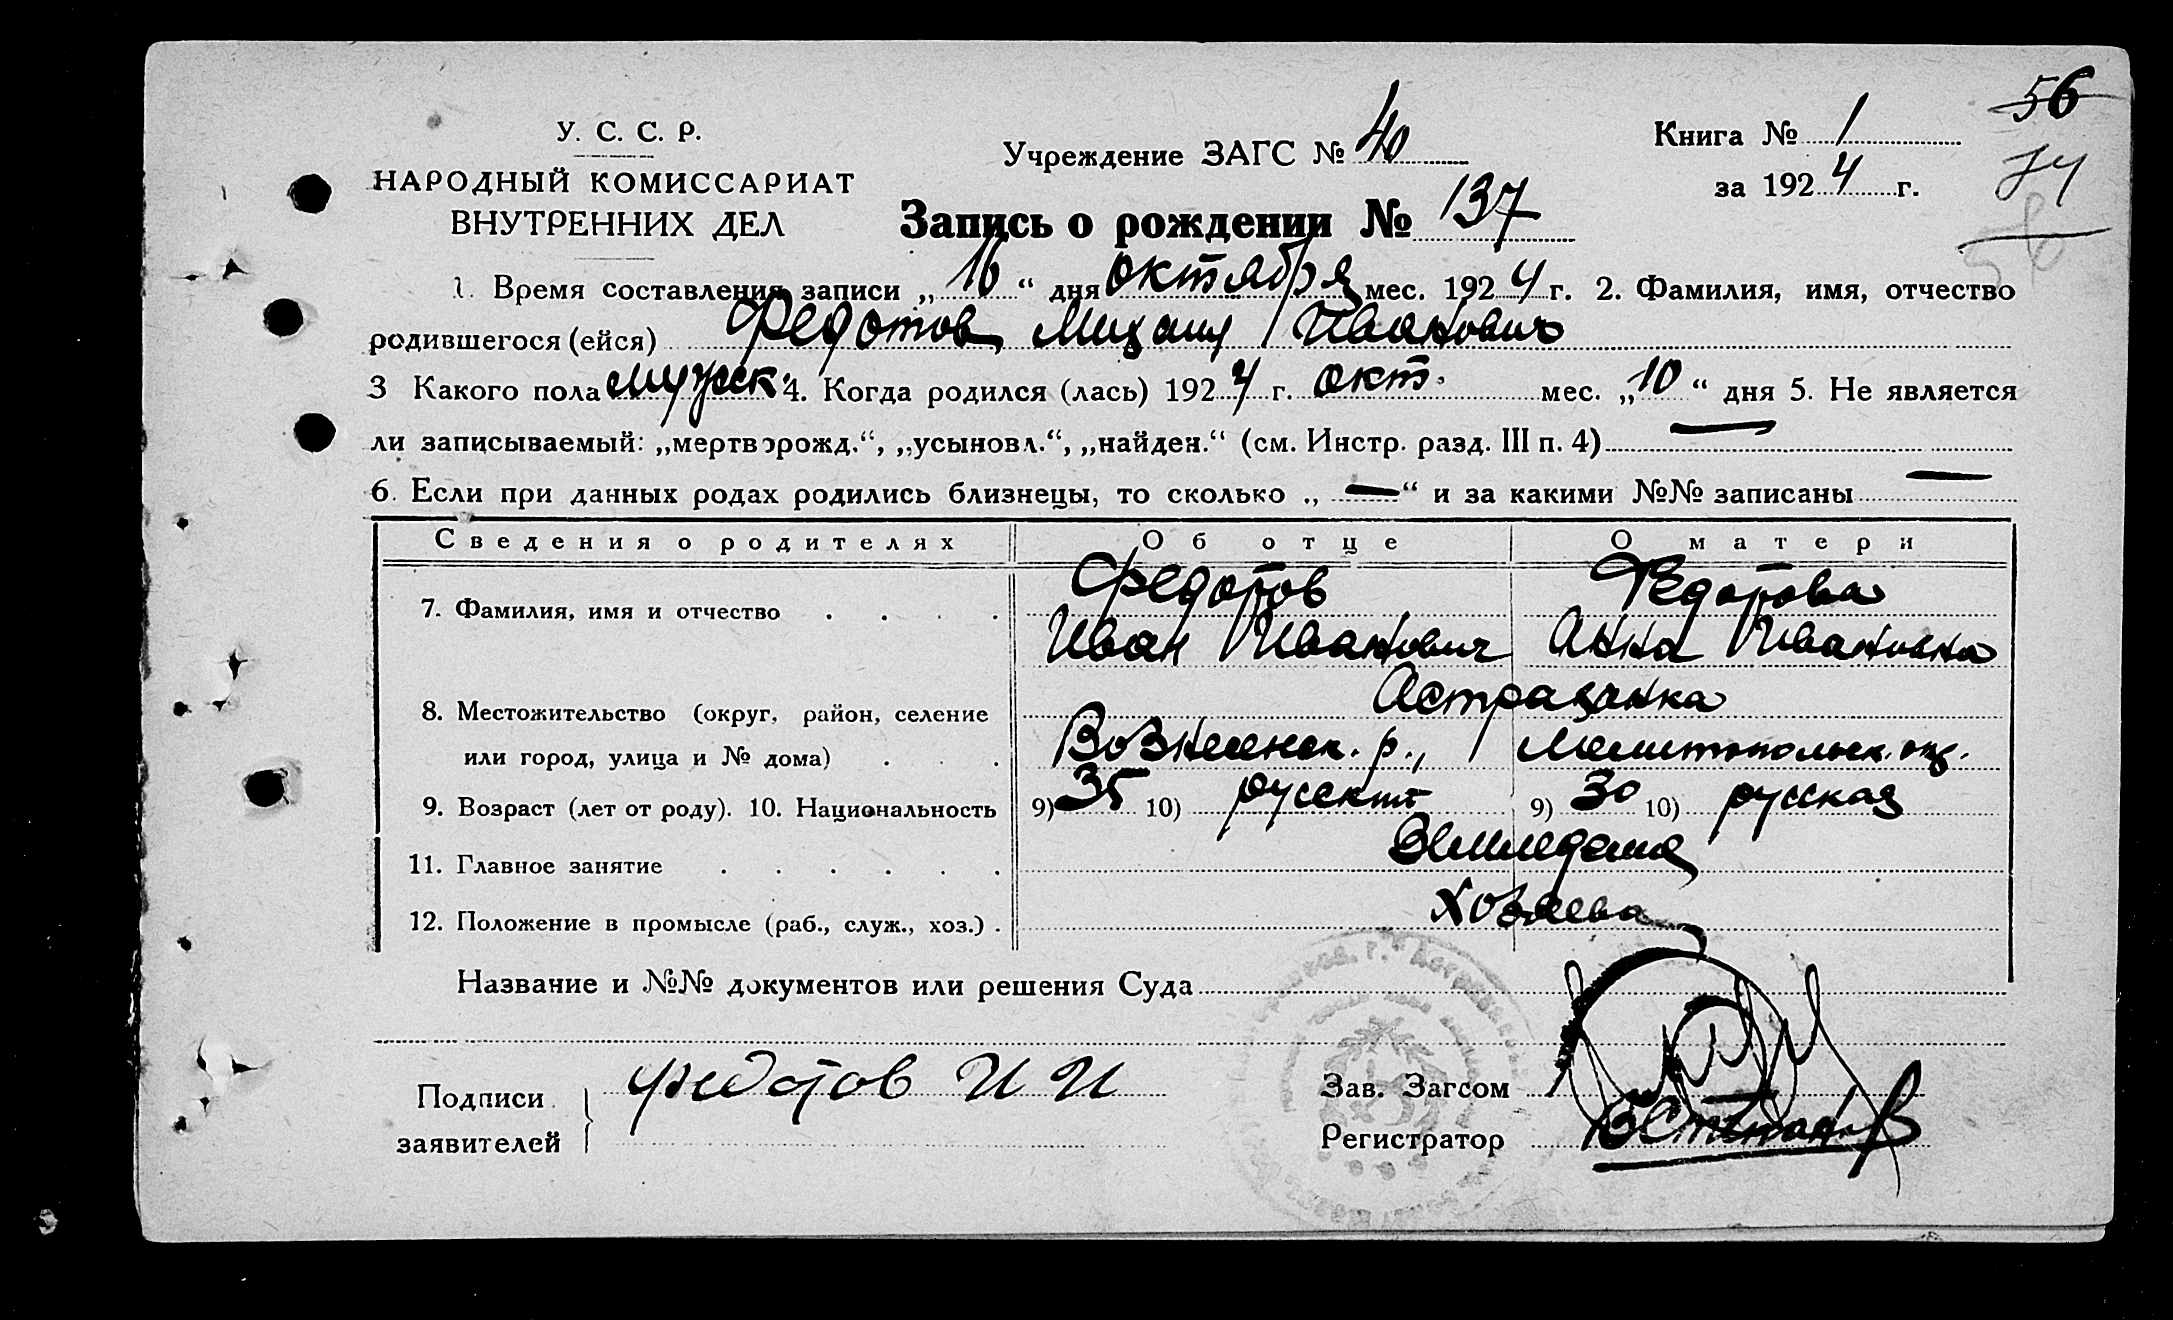 56
У. С. С. Р.
НАРОДНЫЙ КОМИССАРИАТ
ВНУТРЕННИХ ДЕЛ
Учреждение ЗАГС № 40
Запись о рождении № 137
Книга № 1
за 1924 г.
1. Время составления записи „16“ дня октября мес. 1924 г. 2. Фамилия, имя, отчество
родившегося (ейся) Федотов Михаил Иванович
3 Какого пола мужск. 4. Когда родился (лась) 1924 г. окт. мес. „10“ дня 5. Не является
ли записываемый: „мертворожд.“, „усыновл.“, „найден.“ (см. Инстр. разд. III п. 4) —
6. Если при данных родах родились близнецы, то сколько „—“ и за какими №№ записаны —
Сведения о родителях Об отце О матери
7. Фамилия, имя и отчество . . . . Федотов Федотова
Иван Иванович Анна Ивановна
8. Местожительство (округ, район, селение Астраханка
или город, улица и № дома) . . . Вознесенск. р., Мелитопольск. окр.
9. Возраст (лет от роду). 10. Национальность 9) 35 10) русский 9) 30 10) русская
11. Главное занятие . . . . . . Земледелие
12. Положение в промысле (раб., служ., хоз.) . Хозяева
Название и №№ документов или решения Суда
Подписи заявителей Федотов И И
Зав. Загсом
Регистратор